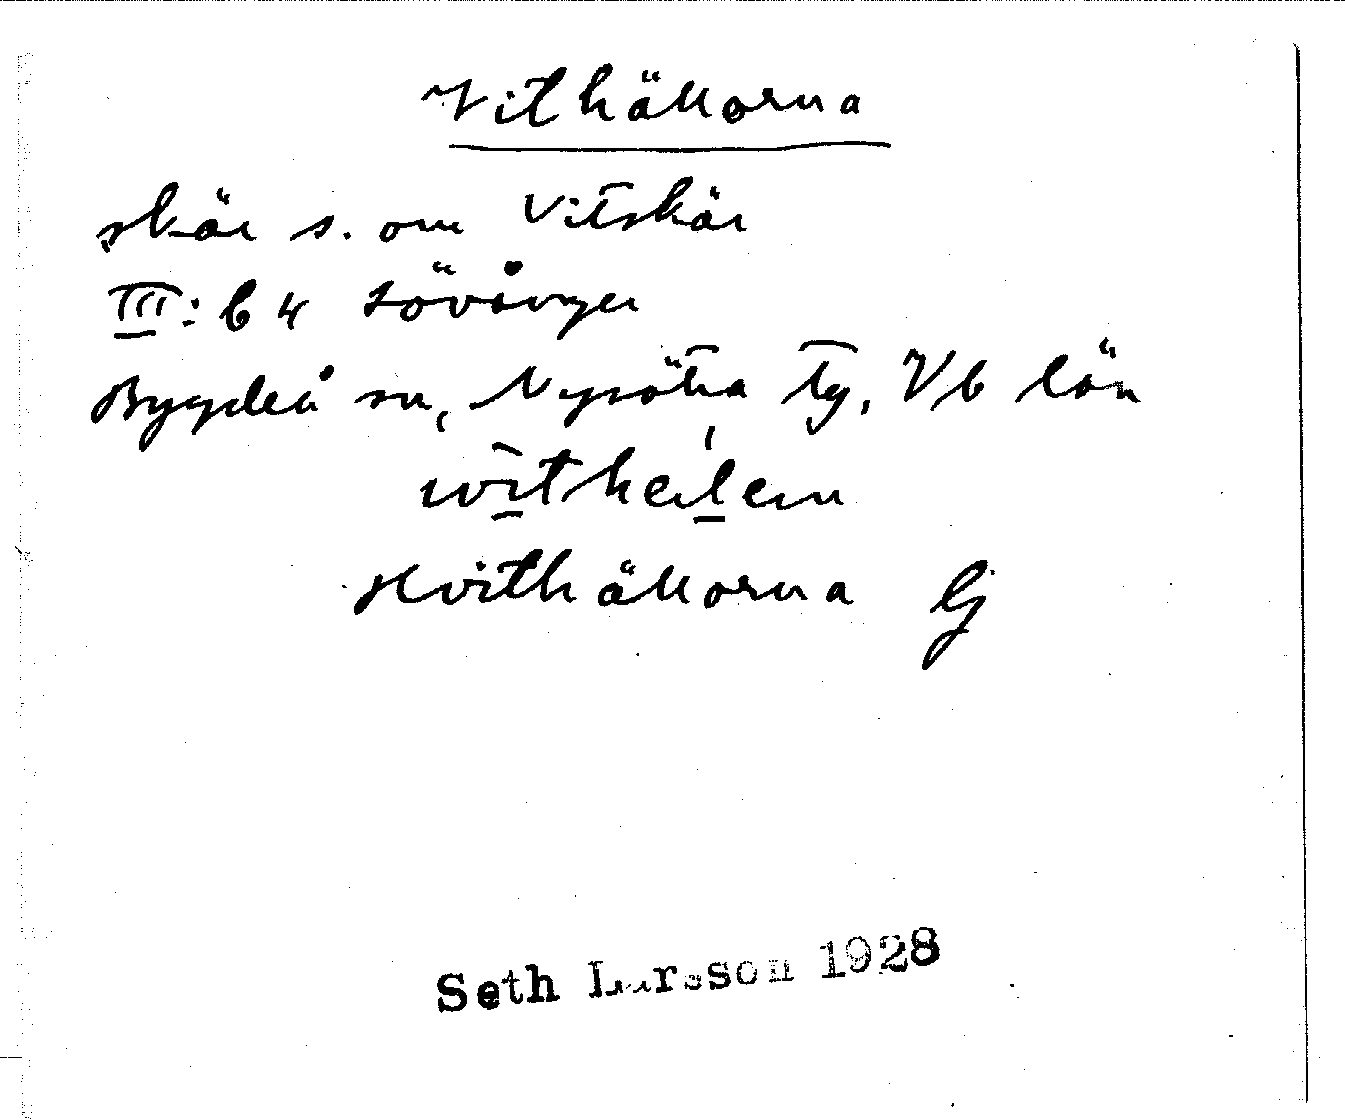 Vithällorna
skär s. om Vitskär
III: b 4 Lövånger
Bygdeå sn, Nysätra tg, Vb län
Hvithällorna Gj
Seth Larsson 1928